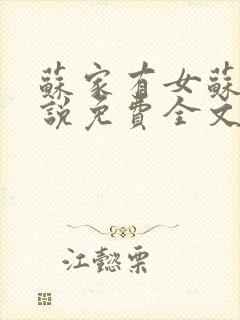 蘇家有女蘇
說免費全文
江懿栗